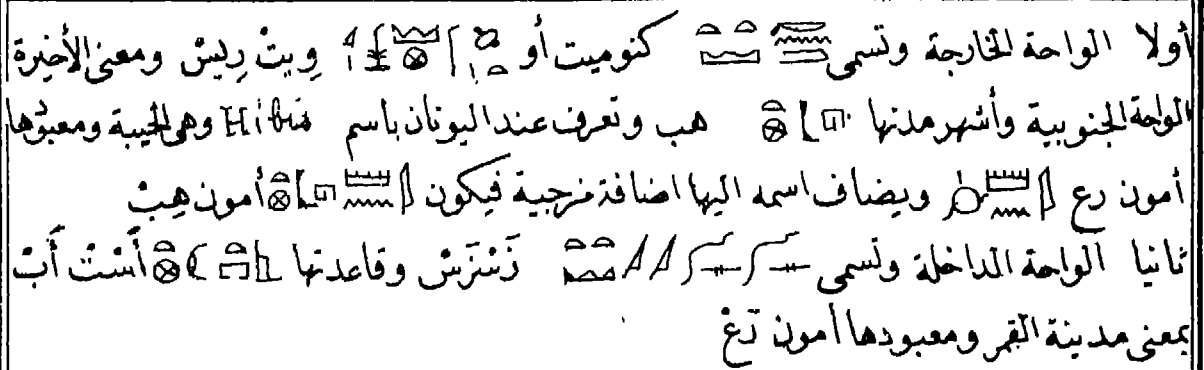 أولا الواحة الخارجة وتسمى كنوميت أو وِيتْ رِيِسْ ومعنى الأخيرة
الواحة الجنوبية وأشهر مدنها هب وتعرف عند اليونان باسم Hibis وهى الحيبة ومعبودها
أمون رع ويضاف اسمه اليها اضافة مزجية فيكون أمون هِبْ
ثانيا الواحة الداخلة وتسمى وقاعدتها أَسْتْ أَبْ
بمعنى مدينة القمر ومعبودها أمون رَعْ